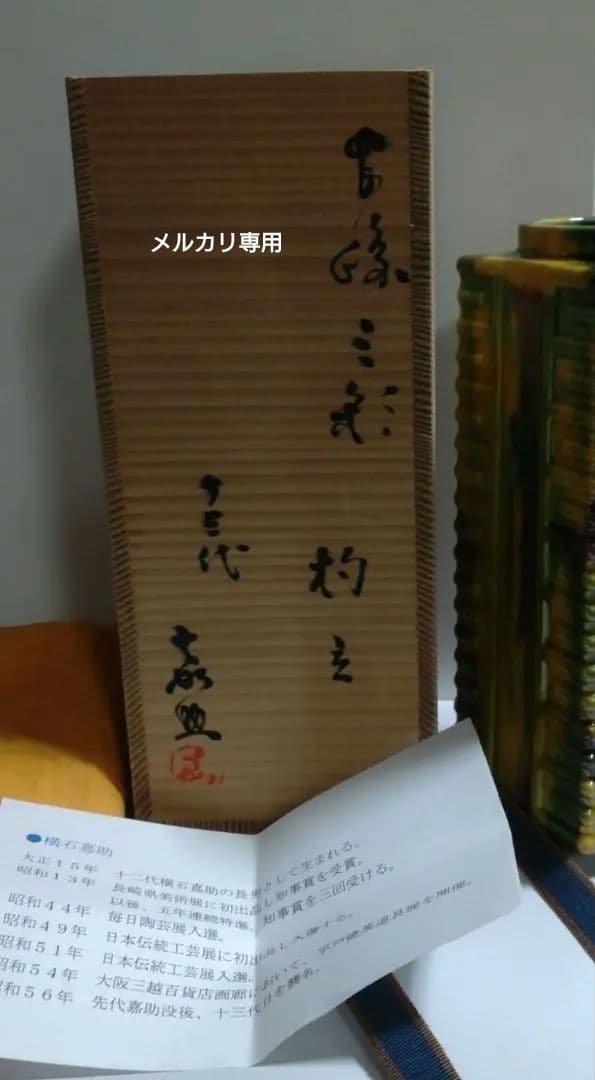 メルカリ専用
三彩
杓立
十三代
嘉助
●横石嘉助
大正15年 十二代横石嘉助の長男として生まれる。
昭和13年 長崎県美術展に初出品し知事賞を受賞。
以後、五年連続特選。知事賞を三回受ける。
昭和44年 毎日陶芸展入選。
昭和49年 日本伝統工芸展に初出品し入選する。
昭和51年 日本伝統工芸展入選。
昭和54年 大阪三越百貨店画廊において、平戸焼茶道具展を開催。
昭和56年 先代嘉助没後、十三代目を襲名。